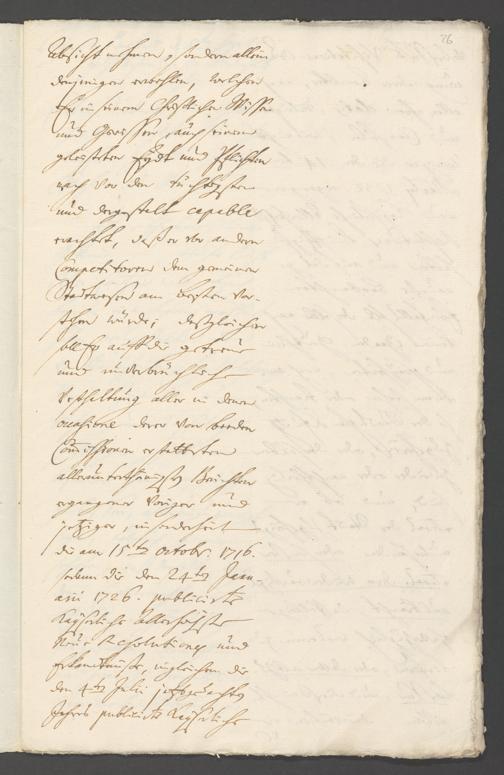 26
Absicht nehmen, sondern allein
denjenigen erwehlen, welchen
Er in seinem Christlichen Wissen
und Gewissen, auch seinem
geleisteten Eydt und Pflichten
nach vor den tüchtigsten
und dergestalt capable
erachtet, daß er vor andern
Competitoren dem gemeinen
Stadtwesen am besten vor-
stehen würde; deßgleichen
soll Er auch die getreue
und unverbrüchliche
Vesthaltung aller in denen
occasione derer von beeden
Commissionen erstatteten
allerunterthänigsten Berichten
ergangener voriger und
jetziger, insonderheit
die am 15ten octobr. 1716.
sodann die den 24ten Janu-
arii 1726. publicirte
Kayserliche Allerhöchste
Neue Resolutiones und
Erkandtnüße, ingleichen die
den 4ten Julii jetzgedachten
Jahrs publicirte Kayserliche